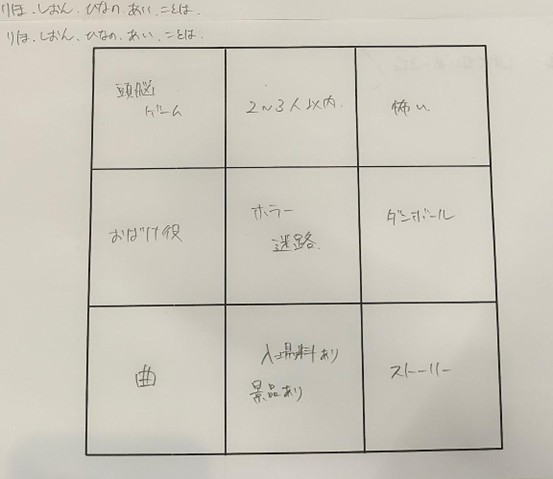 りほ、しおん、ひなの、あい、ことは、
りほ、しおん、ひなの、あい、ことは、
頭脳
ゲーム
2〜3人以内、
怖い
おばけ役
ホラー
迷路、
ダンボール
曲
入場料あり
景品あり
ストーリー